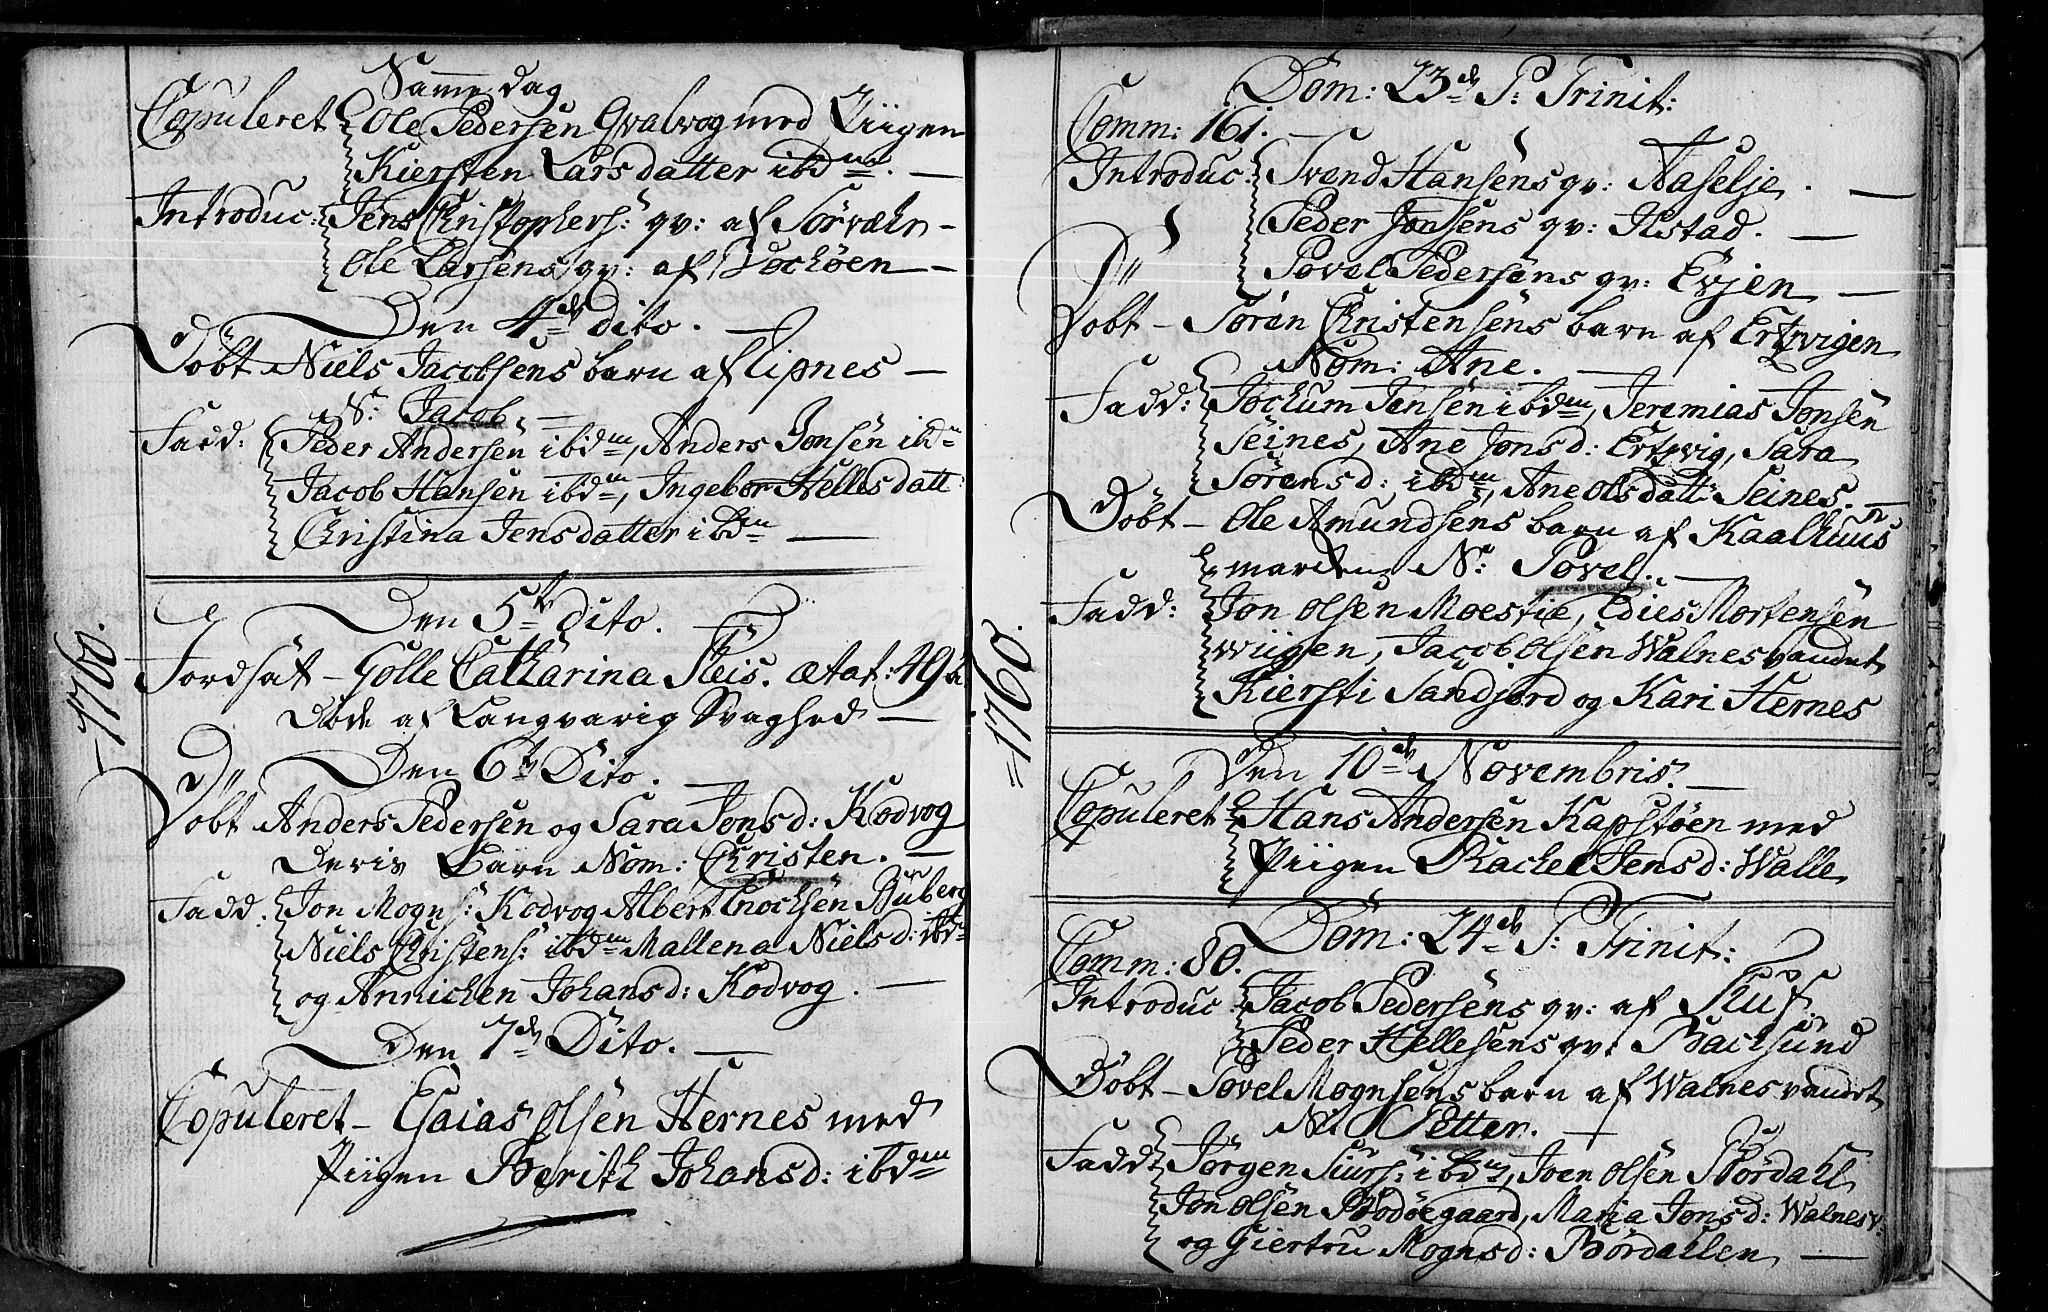 Samme dag
Copuleret Ole Pedersen Qvalvog med Piigen
Kiersten Larsdatter ibdm. —
Introduc: Jens Christophers: qv: af Sørvæhr —
Ole Larsens qv: af —
Den 4de dito. —
Døbt Niels Jacobsens barn af Lipnes —
N: Jacob. —
Fadd: Peder Andersen ibdm, Anders Jonsen ibdm
Jacob Hansen ibdm, Ingebor Hellesdatt:
Christina Jensdatter ibdm —
Den 5te dito. —
Jordsat – Golle Catharina Steis. ætat: 49
Døde af Langvarig Svaghed —
Den 6te Dito. —
Døbt Anders Pedersen og Sara Jonsd: Kodvog
Deris Barn Nom: Christen. —
Fadd. Jon Mogns: Kodvog Albert Enochsen
Niels Christens: ibdm Mallena Nielsd: ibdm
og Annichen Johansd: Kodvog. —
Den 7de Dito. —
Copuleret – Esaias Olsen Hernes med
Piigen Berith Johansd: ibdm
1760.
Dom: 23de P: Trinit:
Comm: 161. —
Introduc: Svend Hansens qv: Aaselje. —
Peder Jonsens qv: Ilstad. —
Povel Pedersens qv: Evjen —
Døbt – Søren Christensens barn af Ertzvigen
Nom: Ane. —
Fadd: Jochum Jensen ibdm, Jeremias Jonsen
Seines, Ane Jonsd: Ertzvig, Sara
Sørensd: ibdm, Ane Olsdatt: Seines. —
Døbt – Ole Amundsens barn af Kaalhuus
marchen N: Povel. —
Fadd: Jon Olsen Moestie, Edies Mortensen
wiigen, Jacob Olsen Walnesvandet
Kiersti Sandjord og Kari Hernes
1760.
Den 10de Novembris. —
Copuleret Hans Andersen Kapstøen med
Piigen Rachel Jensd: Walle
Dom: 24de P: Trinit:
Comm: 80.
Introduc: Jacob Pedersens qv: af
Peder Hellesens qv: Bachsund
Døbt – Povel Mognsens barn af Walnesvandet
N. Petter. —
Fadd: Jørgen Siurs: ibdm, Joen Olsen Børdahl
Jon Olsen Bodøegaard, Maria Jonsd: Walnesv:
og Giertru Mognsd: Børdallen —